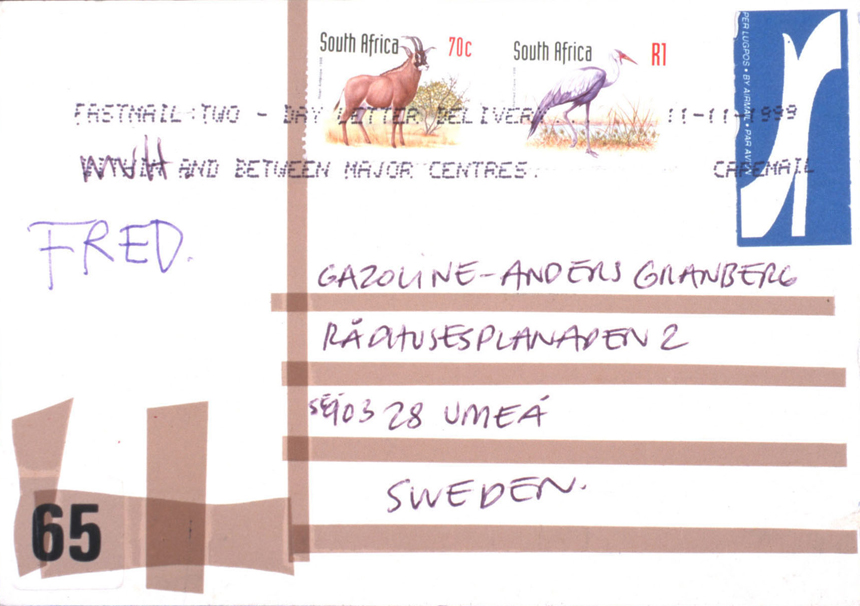 South Africa 70c
South Africa R1
PER LUGPOS • BY AIRMAIL • PAR AVION
FASTMAIL:TWO - DAY LETTER DELIVERY 11-11-1999
AND BETWEEN MAJOR CENTRES. CAPEMAIL
FRED.
GAZOLINE-ANDERS GRANBERG
RÅDHUSESPLANADEN 2
SE-903 28 UMEÅ
SWEDEN.
65